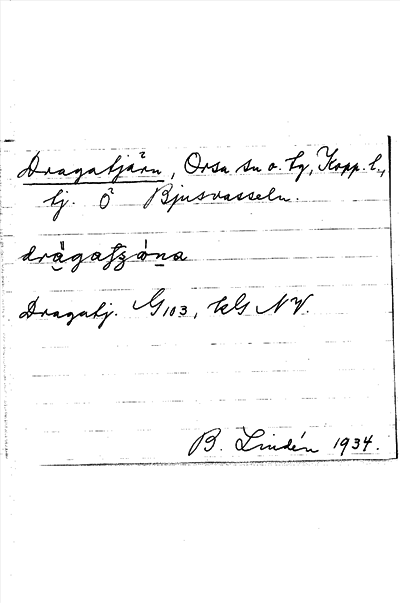 Dragatjärn, Orsa sn o. tg, Kopp. l.,
tj. Ö Bjusvasseln.
Dragatj. G103, kG NV.
B. Lindén 1934.